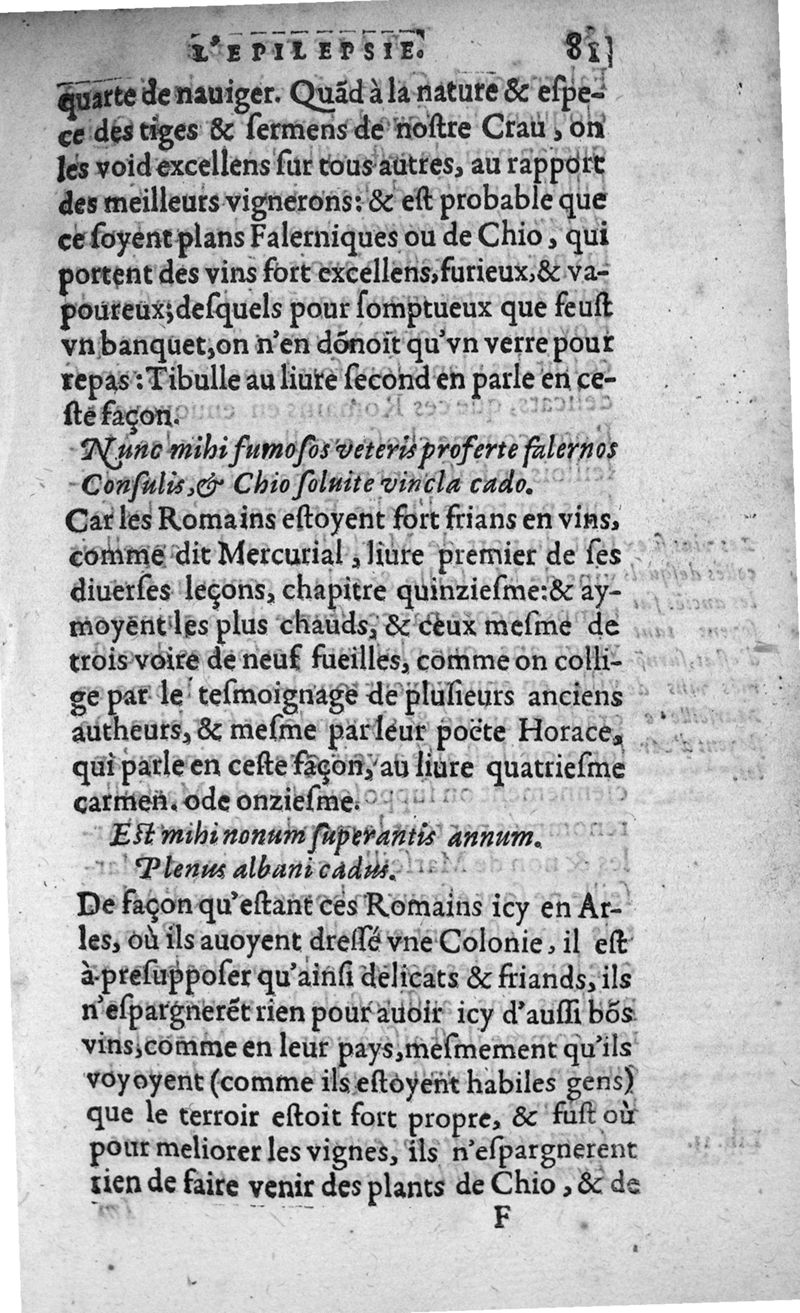 L'EPILEPSIE. 81
quarte de nauiger. Quãd à la nature & eſpe-
ce des tiges & ſermens de noſtre Crau, on
les void excellens ſur tous autres, au rapport
des meilleurs vignerons: & eſt probable que
ce ſoyent plans Falerniques ou de Chio, qui
portent des vins fort excellens, furieux, & va-
poureux; deſquels pour ſomptueux que feuſt
vn banquet, on n'en dõnoit qu'vn verre pour
repas: Tibulle au liure ſecond en parle en ce-
ſte façon.
Nunc mihi fumoſos veteris proferte falernos
Conſulis, & Chio ſoluite vincla cado.
Car les Romains eſtoyent fort frians en vins,
comme dit Mercurial, liure premier de ſes
diuerſes leçons, chapitre quinzieſme: & ay-
moyent les plus chauds, & ceux meſme de
trois voire de neuf fueilles, comme on colli-
ge par le teſmoignage de pluſieurs anciens
autheurs, & meſme par leur poëte Horace,
qui parle en ceſte façon, au liure quatrieſme
carmen. ode onzieſme.
Eſt mihi nonum ſuperantis annum.
Plenus albani cadus.
De façon qu'eſtant ces Romains icy en Ar-
les, où ils auoyent dreſſé vne Colonie, il eſt
à preſuppoſer qu'ainſi delicats & friands, ils
n'eſpargnerẽt rien pour auoir icy d'auſſi bõs
vins, comme en leur pays, meſmement qu'ils
voyoyent (comme ils eſtoyent habiles gens)
que le terroir eſtoit fort propre, & fuſt où
pour meliorer les vignes, ils n'eſpargnerent
rien de faire venir des plants de Chio, & de
F